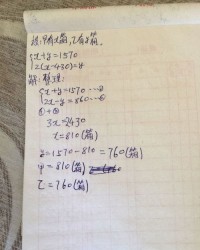 设:甲有x篇,乙有y篇。
{x+y=1570
2(x-430)=y
解:整理:
{x+y=1570 …②
2x-y=860 …①
①+②
3x=2430
x=810(篇)
y=1570-810=760(篇)
甲=810(篇)
乙=760(篇)